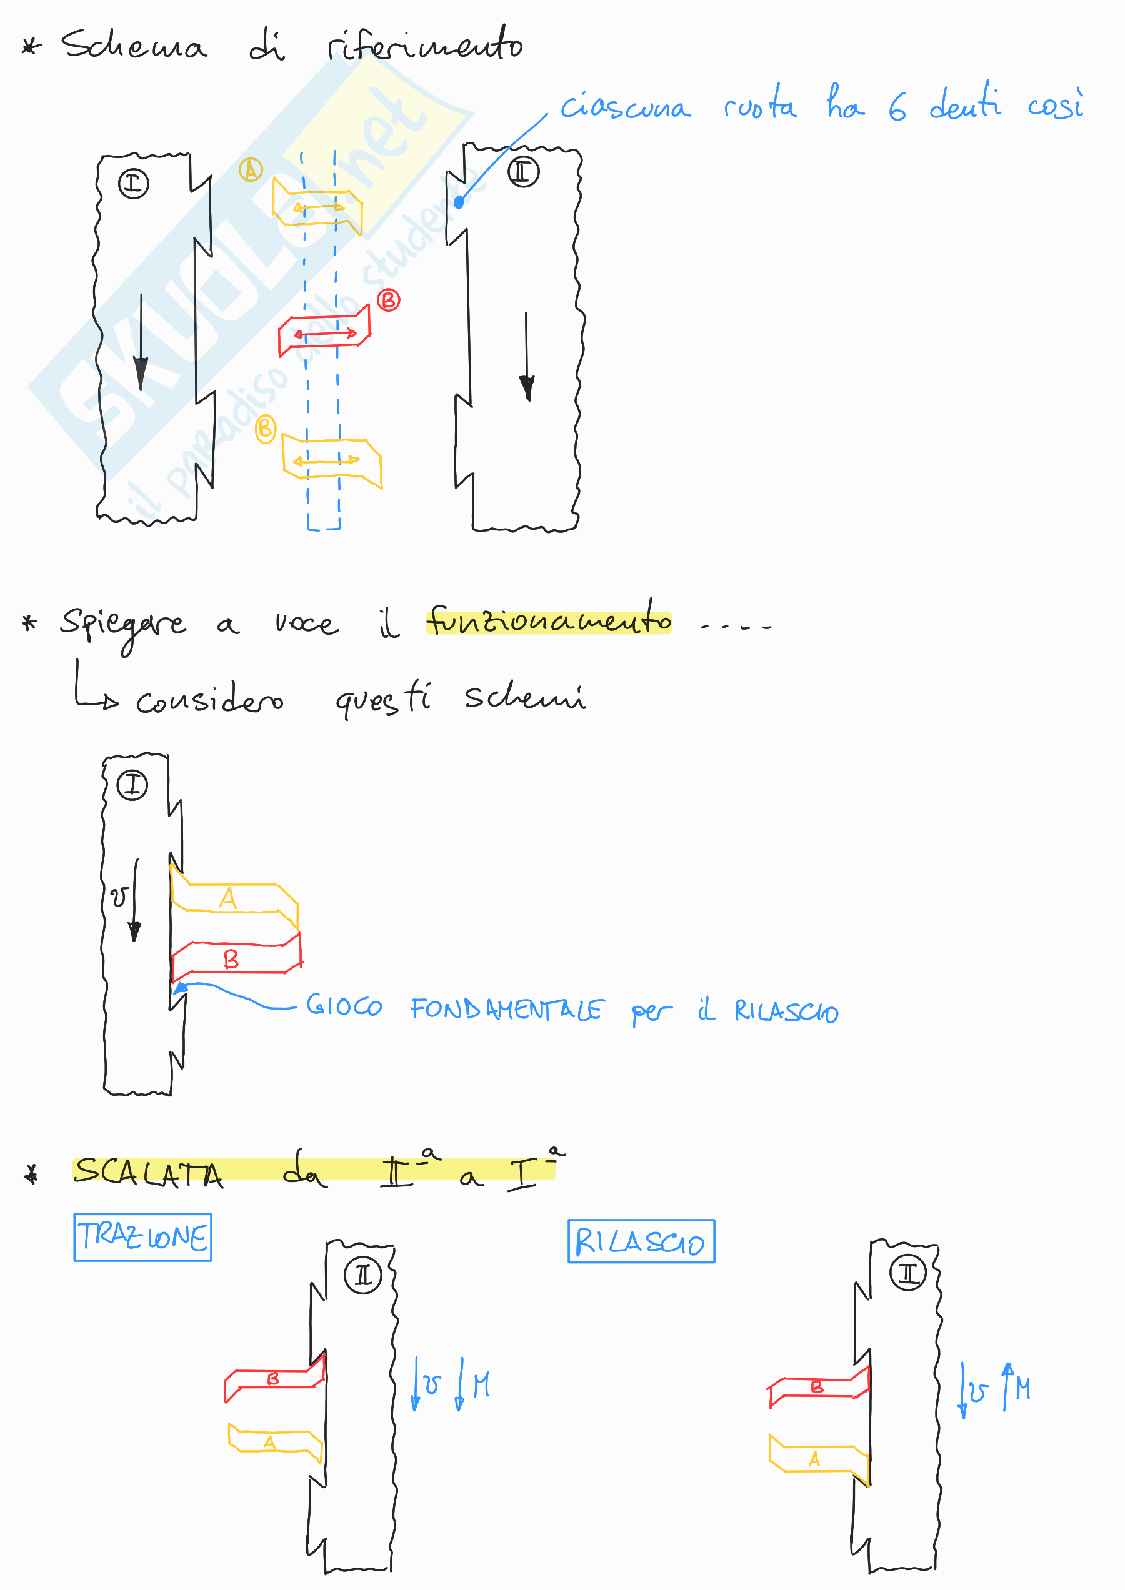 * Schema di riferimento
ciascuna ruota ha 6 denti così
I
A
II
B
B
SKUOLA.net
il paradiso dello studente
* Spiegare a voce il funzionamento ....
considero questi schemi
I
v
A
B
GIOCO FONDAMENTALE per il RILASCIO
* SCALATA da IIª a Iª
TRAZIONE
RILASCIO
II
II
B
v
M
B
v
M
A
A